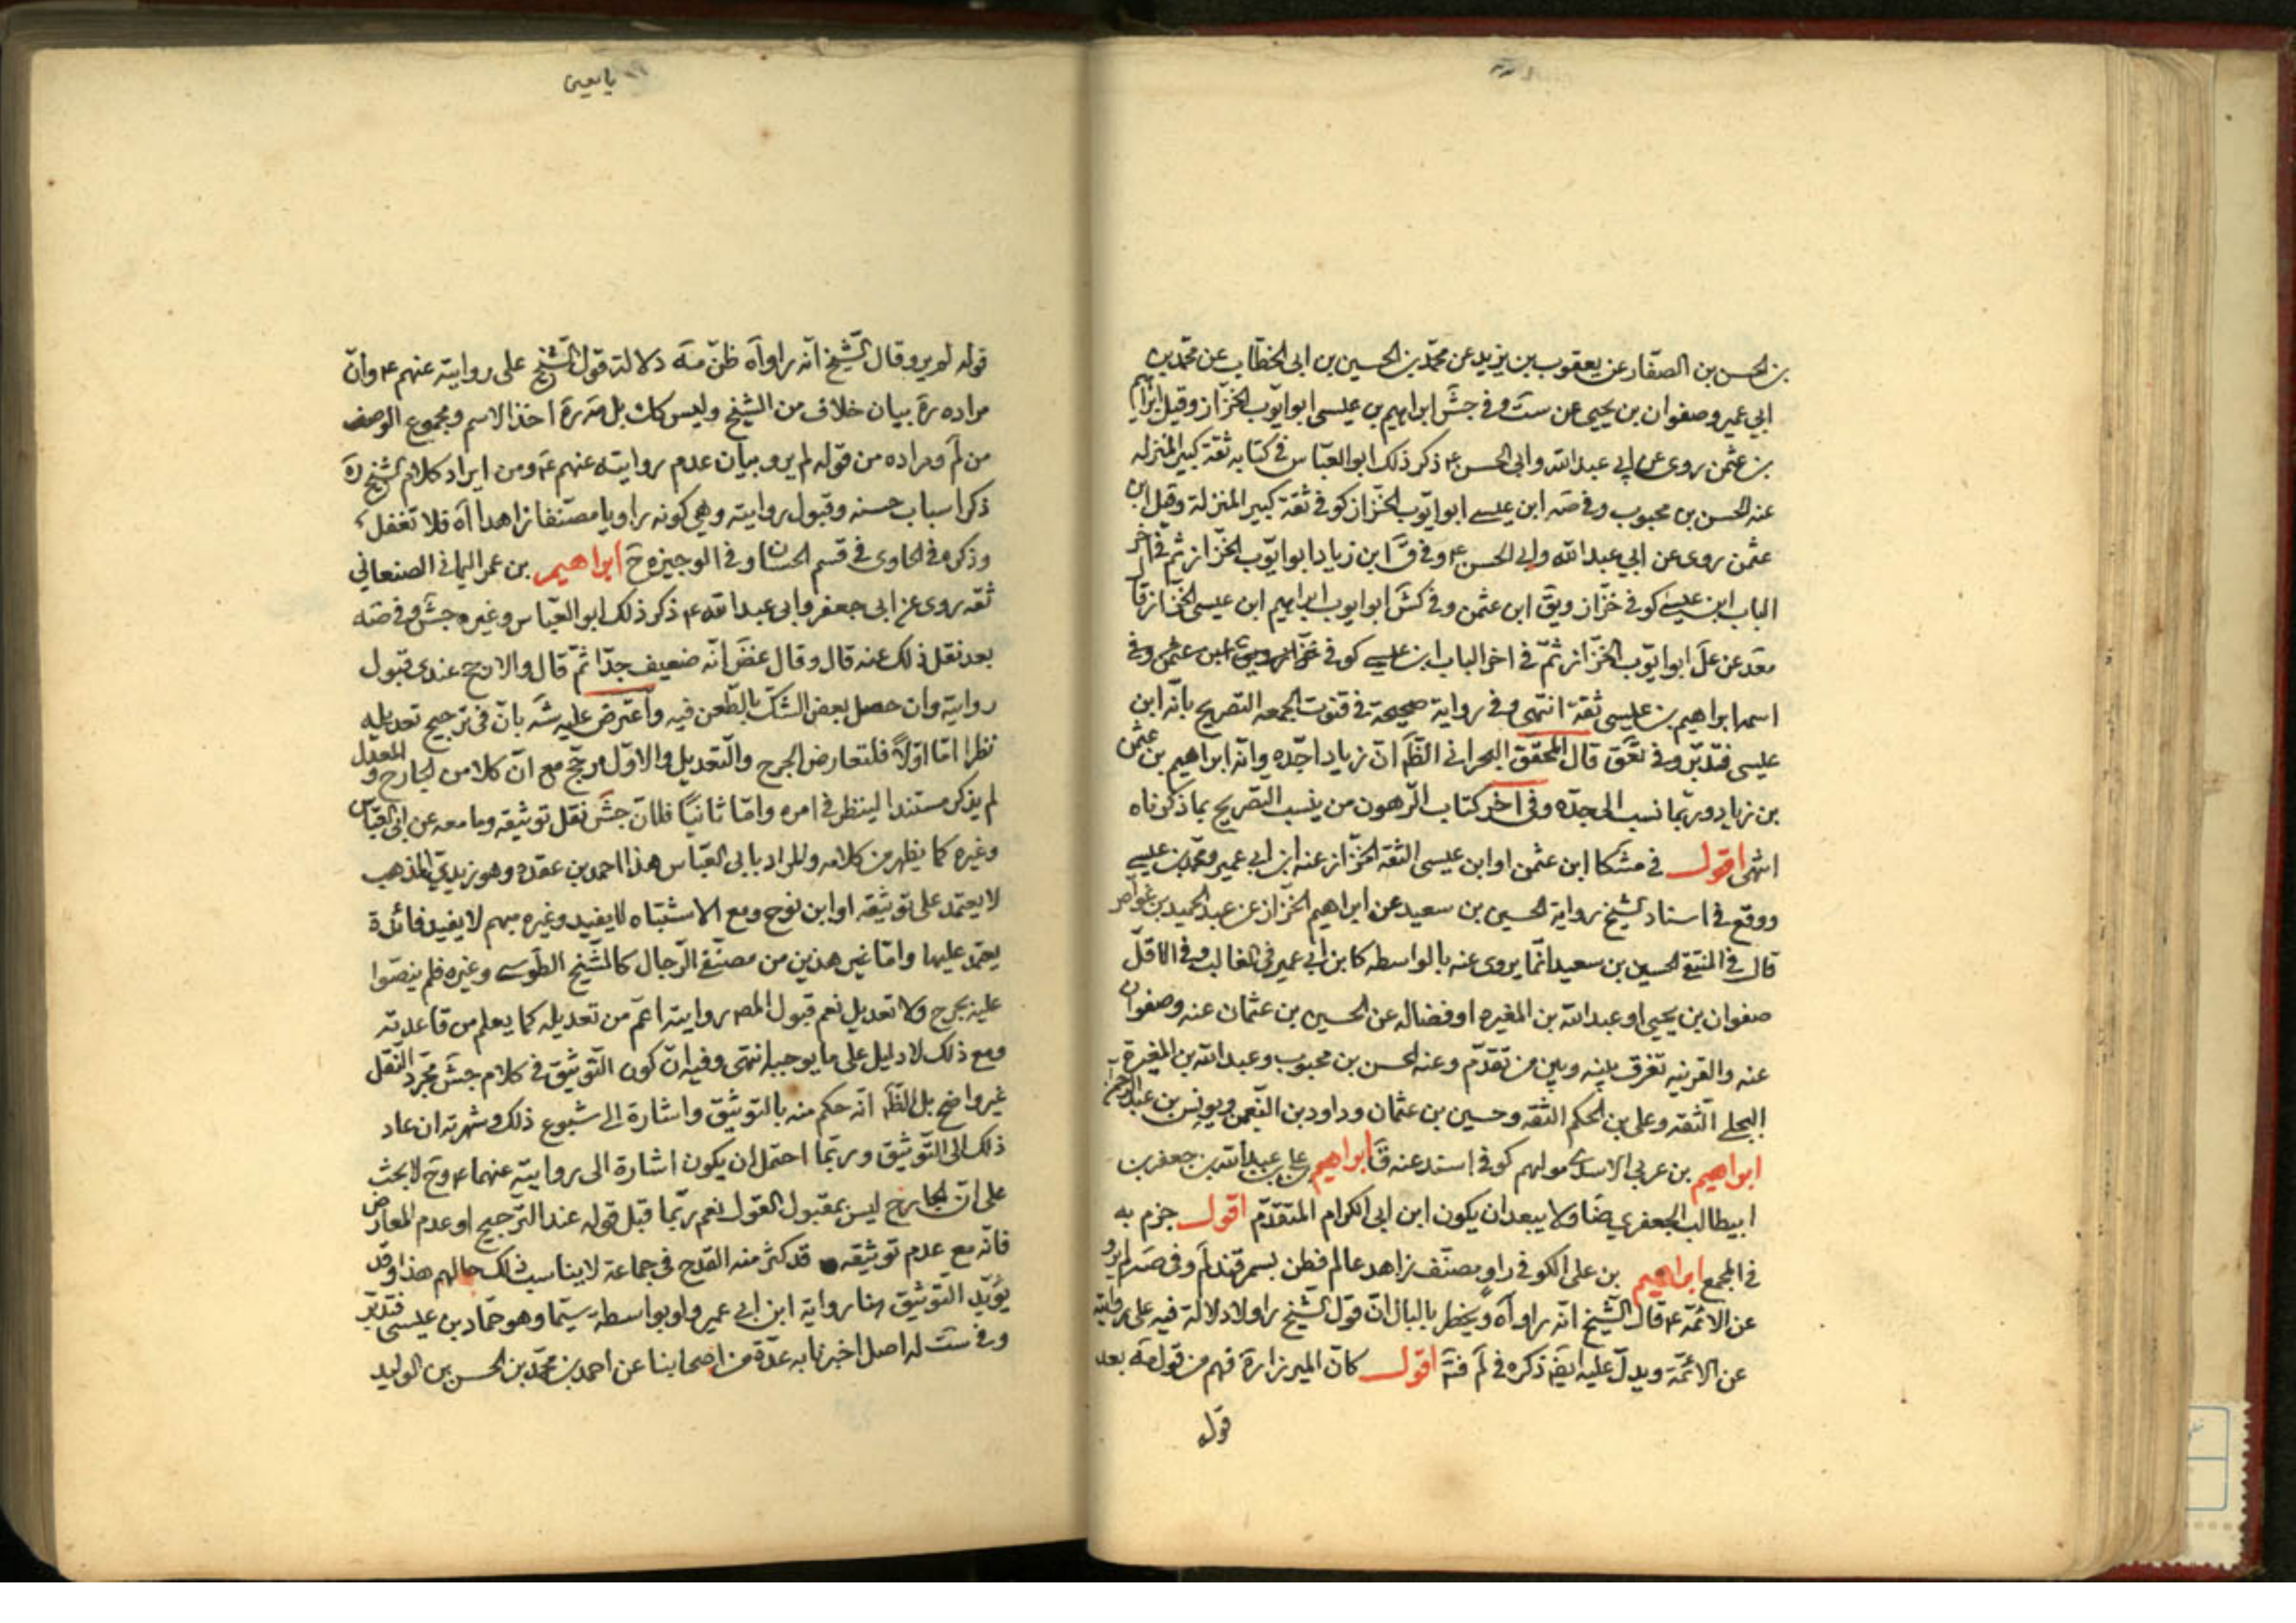 بن الحسن بن الصفّار عن يعقوب بن يزيد عن محمّد بن الحسين بن ابى الخطّاب عن محمّد بن
ابي عمير وصفوان بن يحيى عن ستَ وفي جشَ ابراهيم بن عيسى ابوايّوب الخزّاز وقيل ابراهيم
بن عثمن روى عن ابي عبدالله وابي الحسن ع ذكر ذلك ابو العبّاس في كتابه ثقة كبير المنزله
عنه الحسن بن محبوب وفي صَه ابن عيسے ابوايّوب الخزّاز كوفي ثقة كبير المنزلة وقيل ابن
عثمن روى عن ابي عبدالله وابي الحسن ع وفي قَ ابن زياد ابوايّوب الخزّاز ثم في آخر
الباب ابن عيسے كوفي خزّاز ويقَ ابن عثمن وفي كشَ ابوايوب ابراهيم ابن عيسى الخزّاز قا
معَد عن علَ ابوايّوب الخزّاز ثمّ في اخر الباب ابن عيسے كوفي خزّاز ويق ابن عثمن وفي
اسمها ابراهيم بن عيسى ثقة انتهى وفي رواية صحيحة في قنوت الجمعه التصريح بانّه ابن
عيسى فتدّبّر وفي تعَق قال المحقّق البحراني الظَ انّ زياداً جّده وانّه ابراهيم بن عثمن
بن زياد وربّما نسب الى جدّه وفى اخر كتاب الرّهون من يَب التصريح بما ذكرناه
انتهى اقول في مشكا ابن عثمن او ابن عيسى الثقة الخزّاز عنه ابن ابي عمير ومحمّد بن عيسے
ووقع في اسناد الشيخ رواية الحسين بن سعيد عن ابراهيم الخزّاز عن عبد الحميد بن غواض
قال في المنتقى الحسين بن سعيد انّما يروى عنه بالواسطه كابن ابي عمير في الغالب وفي الاقلّ
صفوان بن يحيى او عبدالله بن المغيره او فضاله عن الحسين بن عثمان عنه وصفوان
عنه والقرينه تفرق بينه وبين من تقدّم وعنه الحسن بن محبوب وعبدالله بن المغيرة
البجلے الثقه وعلى بن الحكم الثقه وحسين بن عثمان وداود بن النّعمن ويونس بن عبد الرحمن
ابراهيم بن عربي الاسدے مولاهم كوفي اسند عنه قَ ابراهيم بن علي بن عبدالله بن جعفر بن
ابيطالب الجعفري ضَا ولا يبعد ان يكون ابن ابي الكرام المتقدّم اقول جزم به
في المجمع ابراهيم بن على الكوفي راوٍ مصنّف زاهد عالم قطن بسمرقند لَم وفي صَه لم يرو
عن الائمّة ع قال الشيخ انّه راوآه ويخطر بالبال انّ قول الشيخ راولا دلالة فيه على روايته
عن الائمّة ويدلّ عليه ايضَ ذكره في لَم فتَه اقول كانّ الميرزا رة فهم من قول صَه بعد
قوله
يا معين
قوله لم يرو وقال الشيخ انّه راوآه ظنّ منه دلالة قول الشيخ على روايته عنهم ع وانّ
مراده رة بيان خلاف من الشيخ وليس كك بل صَه رة اخذ الاسم ومجموع الوصف
من لَم ومراده من قوله لم يرو بيان عدم روايته عنهم ع ومن ايراد كلام الشيخ رة
ذكر اسباب حسنه وقبول روايته وهي كونه راويا مصنّفا زاهدا آه فلا تغفل
وذكره في الحاوى في قسم الحسان وفي الوجيزه حَ ابراهيم بن عمر اليماني الصنعاني
ثقه روى عن ابى جعفر وابى عبدالله ع ذكر ذلك ابو العبّاس وغيره جشَ وفي صَه
بعد نقل ذلك عنه قال وقال غضَ انّه ضعيف جدّا ثمّ قال والارجح عندى قبول
روايته وان حصل بعض الشكّ بالطّعن فيه واعترض عليه شَه بانّ في ترجيح تعديله
نظرا امّا اوّلاً فلتعارض الجرح والتّعديل والاوّل مرجّح مع انّ كلا من الجارح والمعدّل
لم يذكر مستندا لينظر في امره وامّا ثانيًا فلانّ جشَ نقل توثيقه وما معه عن ابي العبّاس
وغيره كما يظهر من كلامه والمراد بابى العبّاس هذا احمد بن عقده وهو زيديّ المذهب
لا يعتمد على توثيقه او ابن نوح ومع الاشتباه لا يفيد وغيره مبهم لا يفيد فائدة
يعتمد عليها وامّا غير هذين من مصنّفي الرّجال كالشّيخ الطّوسے وغيره فلم ينصّوا
عليه بجرح ولا تعديل نعم قبول المصَ روايته اعمّ من تعديله كما يعلم من قاعدته
ومع ذلك لا دليل على ما يوجبه انتهى وفيه انّ كون التّوثيق في كلام جشَ مجرّد النّقل
غير واضح بل الظَ انّه حكم منه بالتوثيق واشارة الى شيوع ذلك وشهرته ان عاد
ذلك الى التّوثيق وربّما احتمل ان يكون اشارة الى روايته عنهما ع وحَ لا بحث
على انّ الجارح ليس بمقبول القول نعم ربّما قبل قوله عند التّرجيح او عدم المعارض
فانّه مع عدم توثيقه قد كثر منه القدح في جماعة لا يناسب ذلك حالهم هذا وقد
يؤيّد التّوثيق هنا رواية ابن ابي عمير ولو بواسطة سيّما وهو حمّاد بن عيسى فتدبّر
وفي ستَ له اصل اخبرنا به عدّة من اصحابنا عن احمد بن محمّد بن الحسن بن الوليد